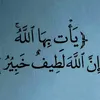 ﴿يَأْتِ بِهَا اللَّهُ
إِنَّ اللَّهَ لَطِيفٌ خَبِيرٌ﴾